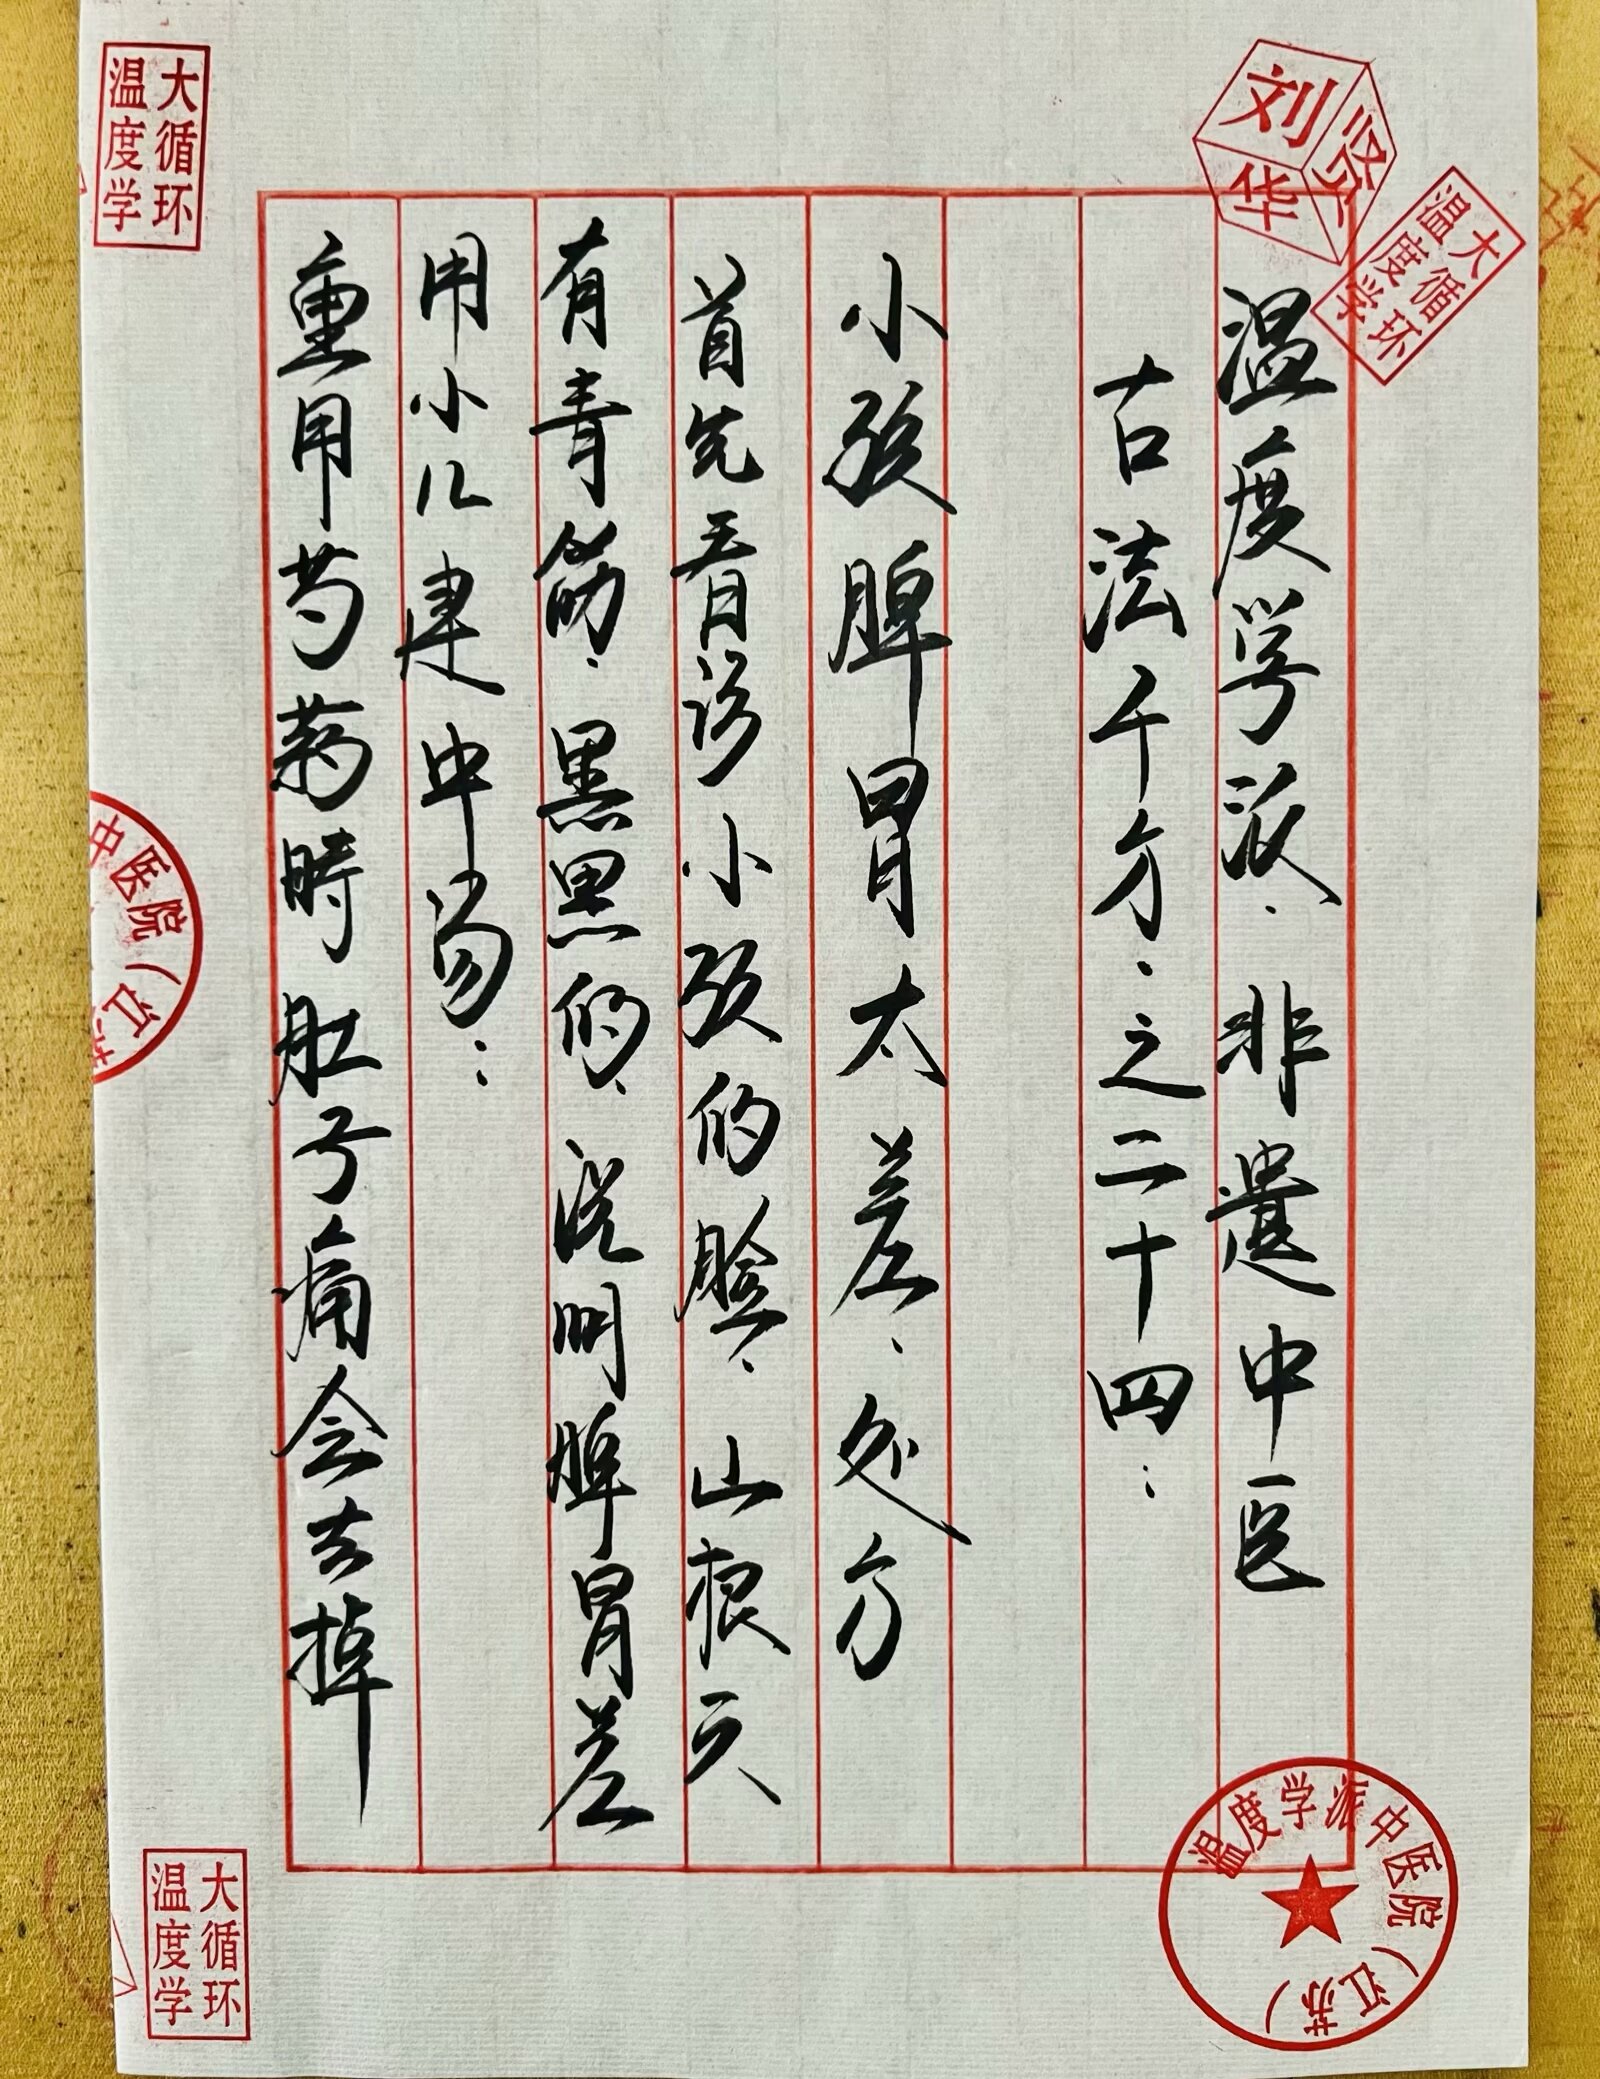 温度学派、非遗中医
古法千方、之二十四：
小孩脾胃太差、处方
首先看诊小孩的脸、山根立
有青筋、黑黑的、说明脾胃差
用小儿建中汤：
重用芍药時肚子痛会去掉
大循环
温度学
刘贤华
大循环
温度学
中医院（江苏
温度学派中医院（江苏）
大循环
温度学